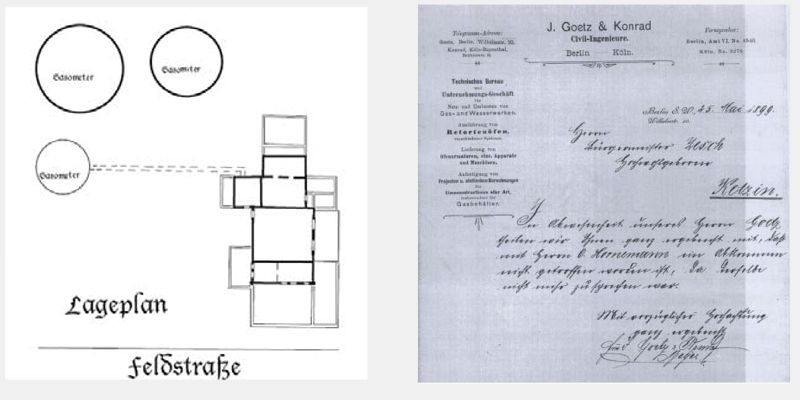 Gasometer
Gasometer
Gasometer
Lageplan
Feldstraße
J. Goetz & Konrad
Civil-Ingenieure.
Berlin — Köln.
Telegramm-Adresse:
Goetz, Berlin, Wilhelmstr.
Konrad, Köln-Bayenthal,
Fernsprecher:
Berlin, Amt VI. No.
Köln, No.
Technisches Bureau
und
Unternehmungs-Geschäft
für
Neu- und Umbauten von
Gas- und Wasserwerken.
Ausführung von
Retortenöfen,
Lieferung von
Ofenarmaturen, eis. Apparate
und Maschinen.
Anfertigung von
Projecten u. statischen Berechnungen
für
Eisenconstructionen aller Art,
Gasbehälter.
Berlin S.W., 25. Mai 1899.
Wilhelmstr.
Herrn
Bürgermeister Zesch
Hochwohlgeboren
Ketzin.
In Abwesenheit unseres Herrn Goetz
teilen wir Ihnen ganz ergebenst mit, daß
mit Herrn O. Hornemann ein Abkommen
nicht getroffen worden ist, da derselbe
nicht mehr zu sprechen war.
Mit vorzüglicher Hochachtung
ganz ergebenst